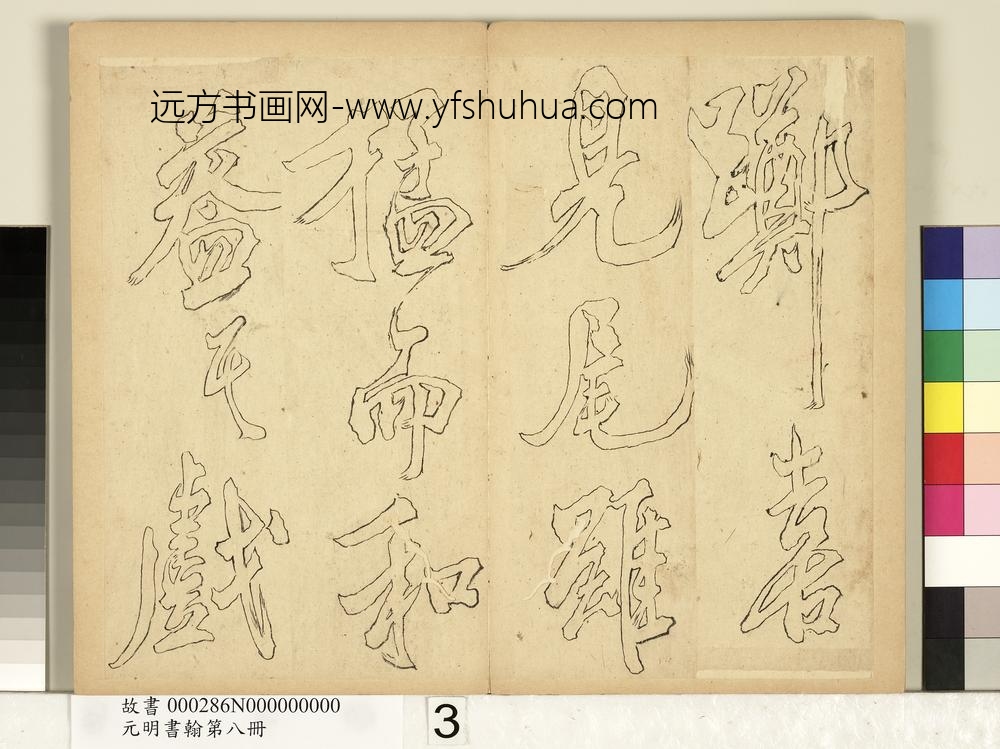 远方书画网-www.yfshuhua.com
見尾雖
猛而和
蓋其戲
故書 000286N000000000
元明書翰第八冊
3